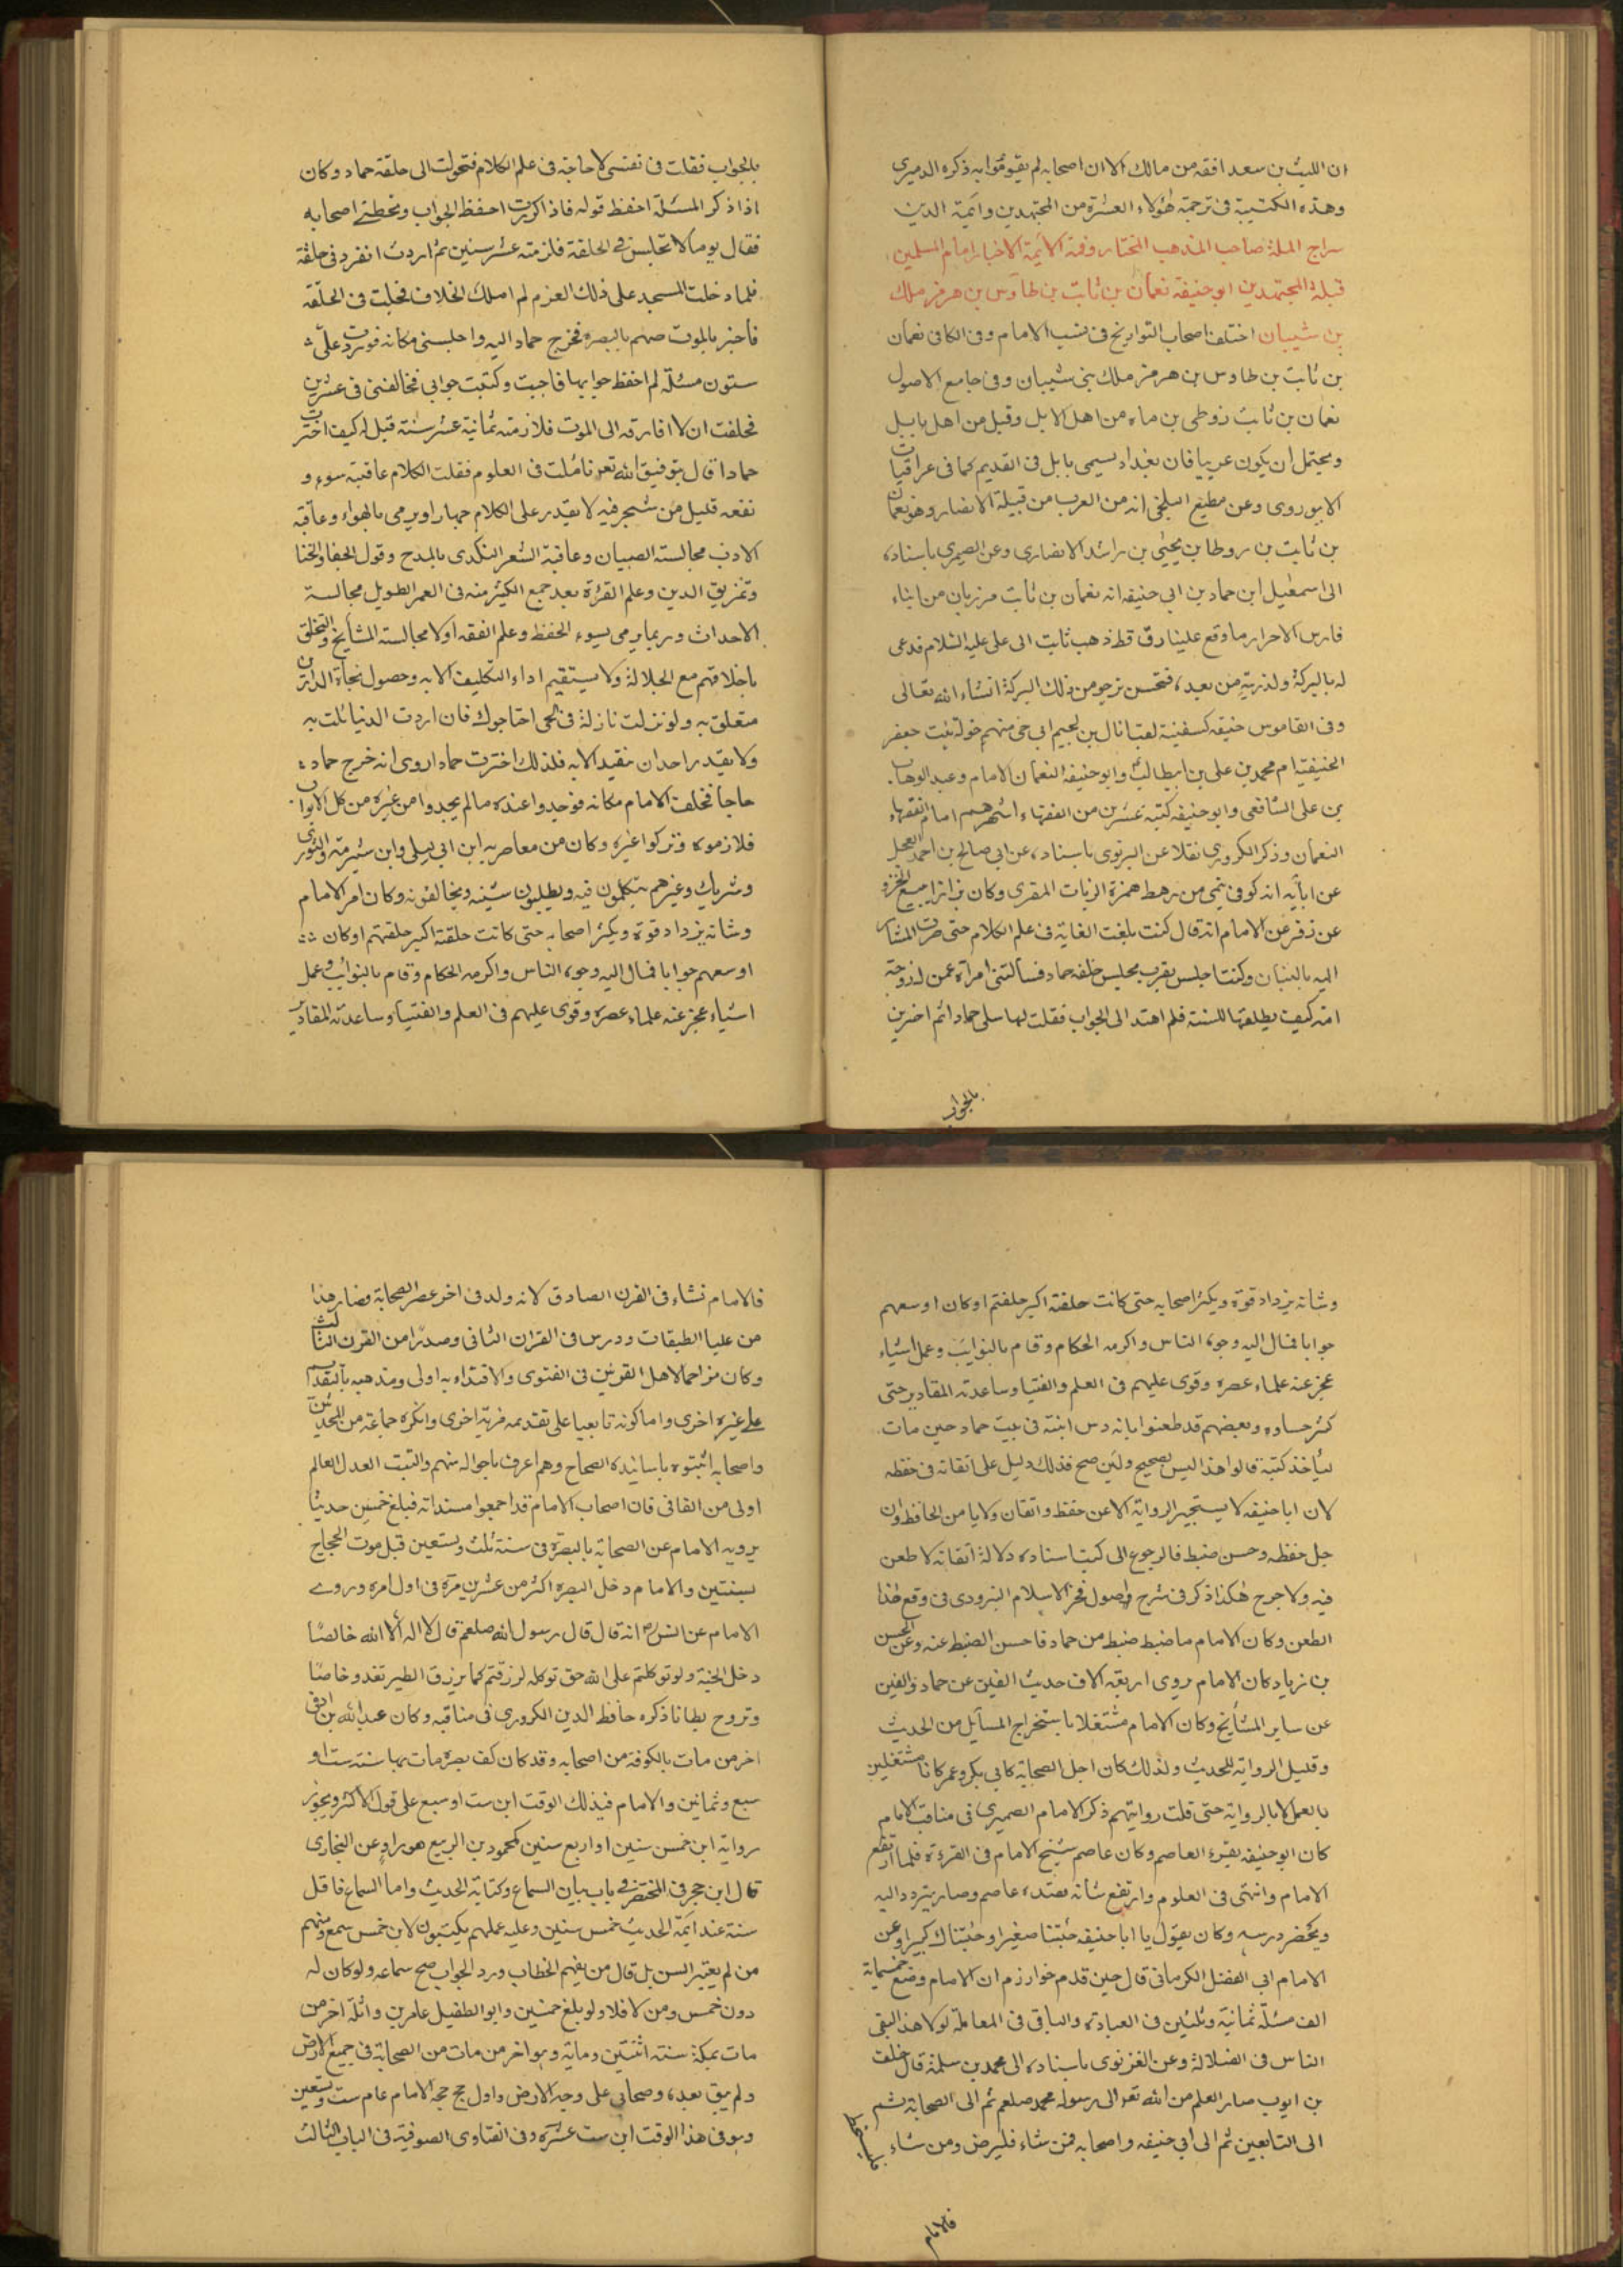 ان الليث بن سعد افقه من مالك الا ان اصحابه لم يقوموا به ذكره الدميرى
وهذه الكتيبة فى ترجمة هؤلاء العشرة من المجتهدين وائمة الدين
سراج الملة صاحب المذهب المختار وقدوة الائمة الاخيار امام المسلمين
قبلة المجتهدين ابو حنيفه نعمان بن ثابت بن طاوس بن هرمز ملك
بن شيبان اختلف اصحاب التواريخ فى نسب الامام وفى الكافى نعمان
بن ثابت بن طاوس بن هرمز ملك بنى شيبان وفى جامع الاصول
نعمان بن ثابت زوطى بن ماه من اهل الابل وقيل من اهل بابل
ويحتمل ان يكون عربيا فان بغداد يسمى بابل فى القديم كما فى عراقيات
الابيوردى وعن مطيع البلخى انه من العرب من قبيلة الانصار وهو نعمان
بن ثابت بن روطا بن يحيى بن راشد الانصارى وعن الصيمرى باسناده
الى اسمعيل ابن حماد بن ابى حنيفه انه نعمان بن ثابت مرزبان من ابناء
فارس الاحرار ما وقع علينا رق قط ذهب ثابت الى على عليه السلام فدعى
له بالبركة ولذريته من بعده فنحن نرجو من ذلك البركة انشاء الله تعالى
وفى القاموس حنيفه كسفينة لقب اثال بن لجيم ابى حى منهم خولة بنت جعفر
الحنيفية ام محمد بن على بن ابيطالب وابو حنيفه النعمان الامام وعبد الوهاب
بن على الشافعى وابو حنيفه كنية عشرين من الفقهاء اشهرهم امام الفقهاء
النعمان وذكر الكرورى نقلا عن البرتوى باسناده عن ابى صالح بن احمد العجل
عن ابائه انه كوفى تيمى من رهط حمزة الزيات المقرى وكان بزازا يبيع الخز و
عن زفر عن الامام انه قال كنت بلغت الغاية فى علم الكلام حتى صرت المشار
اليه بالبنان وكنت اجلس بقرب مجلس حلقه حماد فسألتنى امراة عمن له زوجة
امة كيف يطلقها للسنة فلم اهتد الى الجواب فقلت لها سلى حمادا ثم اخبرينى
بالجواب
بالجواب فقلت فى نفسى لا حاجة فى علم الكلام فتحولت الى حلقة حماد وكان
اذا ذكر المسئلة احفظ قوله فاذا كررت احفظ الجواب ويخطئ اصحابه
فقال يوما لا تجلس فى الحلقة فلزمته عشر سنين ثم اردت انفرد فى حلقة
فلما دخلت المسجد على ذلك العزم لم املك الخلاف فجلست فى الحلقة
فأخبر بالموت حميم بالبصره فخرج حماد اليه واجلسنى مكانه فوردت على
ستون مسئلة لم احفظ جوابها فاجبت وكتبت جوابى فخالفنى فى عشرين
فحلفت ان لا افارقه الى الموت فلازمته ثمانية عشر سنة قيل له كيف اخترت
حمادا قال بتوفيق الله تعو تاملت فى العلوم فقلت الكلام عاقبته سوء و
نفعه قليل من تبحر فيه لا يقدر على الكلام جهارا ويرمى بالهواء وعاقبة
الادب مجالسة الصبيان وعاقبة الشعر التكدى بالمدح وقول الجفا والخنا
وتمزيق الدين وعلم القرءة بعد جمع الكثير منه فى العمر الطويل مجالسة
الاحداث وربما يرمى بسوء الحفظ وعلم الفقه اولا مجالسة المشايخ والتخلق
باخلاقهم مع الجلالة ولا يستقيم اداء التكليف الا به وحصول نجاة الدارين
متعلق به ولو نزلت نازلة فى الحى احتاجوك فان اردت الدنيا نلت به
ولا يقدر احد ان يتقيد الا به فلذلك اخترت حمادا روى انه خرج حماد
حاجا فخلف الامام مكانه فوجدوا عنده ما لم يجدوا من غيره من كل الالوان
فلازموه وتركوا غيره وكان من معاصريه ابن ابى ليلى وابن شبرمة والثورى
وشريك وغيرهم يتكلمون فيه ويطلبون شينه ويخالفونه وكان امر الامام
وشانه يزداد قوة ويكثر اصحابه حتى كانت حلقته اكبر حلقتهم اوكان
اوسعهم جوابا فمال اليه وجوه الناس واكرمه الحكام وقام بالنوائب وعمل
اشياء عجز عنه علماء عصره وقوى عليهم فى العلم والفتيا وساعدته المقادير
وشانه يزداد قوة ويكثر اصحابه حتى كانت حلقته اكبر حلقتهم اوكان اوسعهم
جوابا فمال اليه وجوه الناس واكرمه الحكام وقام بالنوايب وعمل اشياء
عجز عنه علماء عصره وقوى عليهم فى العلم والفتيا وساعدته المقادير حتى
كثر حساده وبعضهم قد طعنوا بانه دس ابنته فى بيت حماد حين مات
لياخذ كتبه قالوا هذا ليس بصحيح ولئن صح فذلك دليل على اتقانه فى حفظه
لان ابا حنيفه لا يستجيز الرواية الا عن حفظ واتقان ولا يامن الحافظ وان
جل حفظه وحسن ضبط فالرجوع الى كتب استاده دلالة اتقانه لا طعن
فيه ولا جرح هكذا ذكر فى شرح اصول فخر الاسلام البزدوى فى وقع هذا
الطعن وكان الامام ما ضبط ضبط من حماد فاحسن الضبط عنه وعن الحسن
بن زياد كان الامام يروى اربعة الاف حديث الفين عن حماد والفين
عن ساير المشايخ وكان الامام مشتغلا باستخراج المسايل من الحديث
وقليل الرواية للحديث ولذلك كان اجل الصحابة كابى بكر وعمر كانا مشتغلين
بالعمل لا بالرواية حتى قلت روايتهم ذكر الامام الصميرى فى مناقب الامام
كان ابو حنيفه يقرء العاصم وكان عاصم شيخ الامام فى القرءة فلما ارتفع
الامام وانتهى فى العلوم وارتفع شانه بعده عاصم وصار يتردد اليه
ويحضر درسه وكان يقول يا ابا حنيفه جئتنا صغيرا وجئناك كبيرا وعن
الامام ابى الفضل الكرمانى قال حين قدم خوارزم ان الامام وضع خمسماية
الف مسئلة ثمانية وثلثين فى العبادة والباقى فى المعاملة لولا هذا لبقى
الناس فى الضلالة وعن الغزنوى باسناده الى محمد بن سلمة قال خلف
بن ايوب صار العلم من الله تعو الى رسوله محمد صلعم ثم الى الصحابة ثم
الى التابعين ثم الى ابى حنيفه واصحابه فمن شاء فليرض ومن شاء
فليسخط
فالامام
فالامام نشاء فى القرن الصادق لانه ولد فى اخر عصر الصحابة وصار هذا
من عليا الطبقات ودرس فى القران الثانى وصدرا من القرن الثالث
وكان مزاحما لاهل القرنين فى الفتوى والاقتداء به اولى ومذهبه بالتقديم
على غيره اخرى واما كونه تابعيا على تقدمه فرية اخرى وانكره جماعة من المحدثين
واصحابه اثبتوه باسانيده الصحاح وهم اعرف باحواله منهم والثبت العدل العالم
اولى من النافى فان اصحاب الامام قد اجمعوا مسنداته فبلغ خمسين حديثا
يرويه الامام عن الصحابة بالبصرة فى سنة ثلث وتسعين قبل موت الحجاج
بسنتين والامام دخل البصره اكثر من عشرين مرة فى اول امره وروى
الامام عن انس رض انه قال قال رسول الله صلعم قال لا اله الا الله خالصا
دخل الجنة ولو توكلتم على الله حق توكله لرزقتم كما يرزق الطير تغدو خاصا
وتروح بطانا ذكره حافظ الدين الكرورى فى مناقبه وكان عبد الله بن اوفى
اخر من مات بالكوفة من اصحابه وقد كان كف بصره مات بها سنة ست او
سبع وثمانين والامام فى ذلك الوقت ابن ست او سبع على قول الاكثر ويجوز
رواية ابن خمس سنين او اربع سنين كمحمود بن الربيع هو راو عن البخارى
قال ابن حجر فى المختصر فى باب بيان السماع وكتابة الحديث واما السماع فاقل
سنة عند ائمة الحديث خمس سنين وعليه عملهم يكتبون لابن خمس سمع ومنهم
من لم يعتبر السن بل قال من يفهم الخطاب ورد الجواب صح سماعه ولو كان له
دون خمس ومن لا فلا ولو بلغ خمسين وابو الطفيل عامر بن واثلة اخر من
مات بمكة سنة اثنتين وماية وهو اخر من مات من الصحابة فى جميع الارض
ولم يبق بعده وصحابى على وجه الارض واول حج حجه الامام عام ست وتسعين
وهو فى هذا الوقت ابن ست عشرة وفى الفتاوى الصوفية فى الباب الثالث